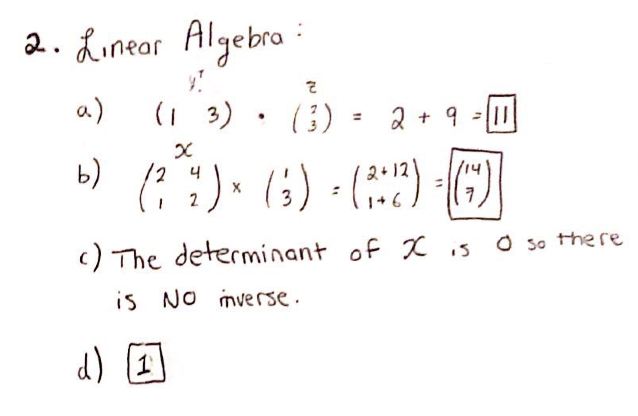 2. Linear Algebra:
yᵀ z
a) (1 3) · (2 3) = 2 + 9 = 11
x
b) (2 4 1 2) x (1 3) = (2+12 1+6) = (14 7)
c) The determinant of x is 0 so there
is NO inverse.
d) 1